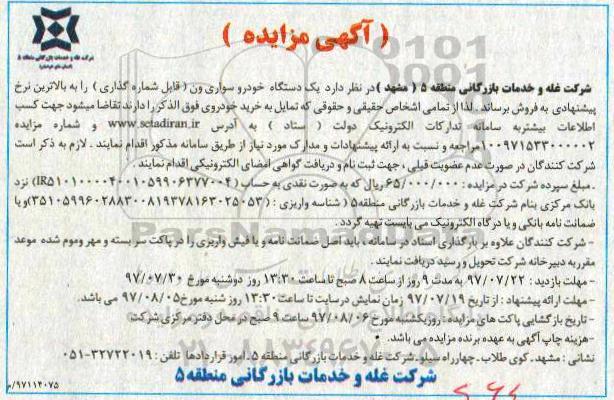 شرکت غله و خدمات بازرگانی منطقه ۵
( آگهی مزایده )
شرکت غله و خدمات بازرگانی منطقه ۵ ( مشهد ) در نظر دارد یک دستگاه خودرو سواری ون ( قابل شماره گذاری ) را به بالاترین نرخ
پیشنهادی به فروش برساند . لذا از تمامی اشخاص حقیقی و حقوقی که تمایل به خرید خودروی فوق الذکر را دارند تقاضا میشود جهت کسب
اطلاعات بیشتر به سامانه تدارکات الکترونیک دولت ( ستاد ) به آدرس www.setadiran.ir و شماره مزایده
۱۰۰۹۷۱۵۳۳۰۰۰۰۰۲ مراجعه و نسبت به ارائه پیشنهادات و مدارک مورد نیاز از طریق سامانه مذکور اقدام نمایند . لازم به ذکر است
شرکت کنندگان در صورت عدم عضویت قبلی ، جهت ثبت نام و دریافت گواهی امضای الکترونیکی اقدام نمایند .
. مبلغ سپرده شرکت در مزایده : ۶۵/۰۰۰/۰۰۰ ریال که به صورت نقدی به حساب ( IR۵۱۰۱۰۰۰۰۴۰۰۱۰۵۹۹۰۶۳۷۷۰۰۴ ) نزد
بانک مرکزی بنام شرکت غله و خدمات بازرگانی منطقه ۵ ( شناسه واریزی : ۳۵۱۰۵۹۹۶۰۲۸۸۳۰۰۸۱۹۳۷۸۱۶۳۰۲۵۰۵۳ ) و یا
ضمانت نامه بانکی و یا درگاه الکترونیک می بایست تهیه گردد .
- شرکت کنندگان علاوه بر بارگذاری اسناد در سامانه ، باید اصل ضمانت نامه و یا فیش واریزی را در پاکت سر بسته و مهر و موم شده موعد
مقرر به دبیرخانه شرکت تحویل و رسید دریافت نمایند .
- مهلت بازدید : ۹۷/۰۷/۲۲ به مدت ۹ روز از ساعت ۸ صبح تا ساعت ۱۳:۳۰ روز دوشنبه مورخ ۹۷/۰۷/۳۰
- مهلت ارائه پیشنهاد : از تاریخ ۹۷/۰۷/۱۹ زمان نمایش در سایت تا ساعت ۱۳:۳۰ روز شنبه مورخ ۹۷/۰۸/۰۵ می باشد .
- تاریخ بازگشایی پاکت های مزایده : روز یکشنبه مورخ ۹۷/۰۸/۰۶ ساعت ۹ صبح در محل دفتر مرکزی شرکت
- هزینه چاپ آگهی به عهده برنده مزایده می باشد .
نشانی : مشهد ـ کوی طلاب ـ چهارراه سیلو ـ شرکت غله و خدمات بازرگانی منطقه ۵ ـ امور قراردادها تلفن : ۳۲۷۲۲۰۱۹-۰۵۱
شرکت غله و خدمات بازرگانی منطقه ۵
۹۷۱۱۴۰۷۵/م